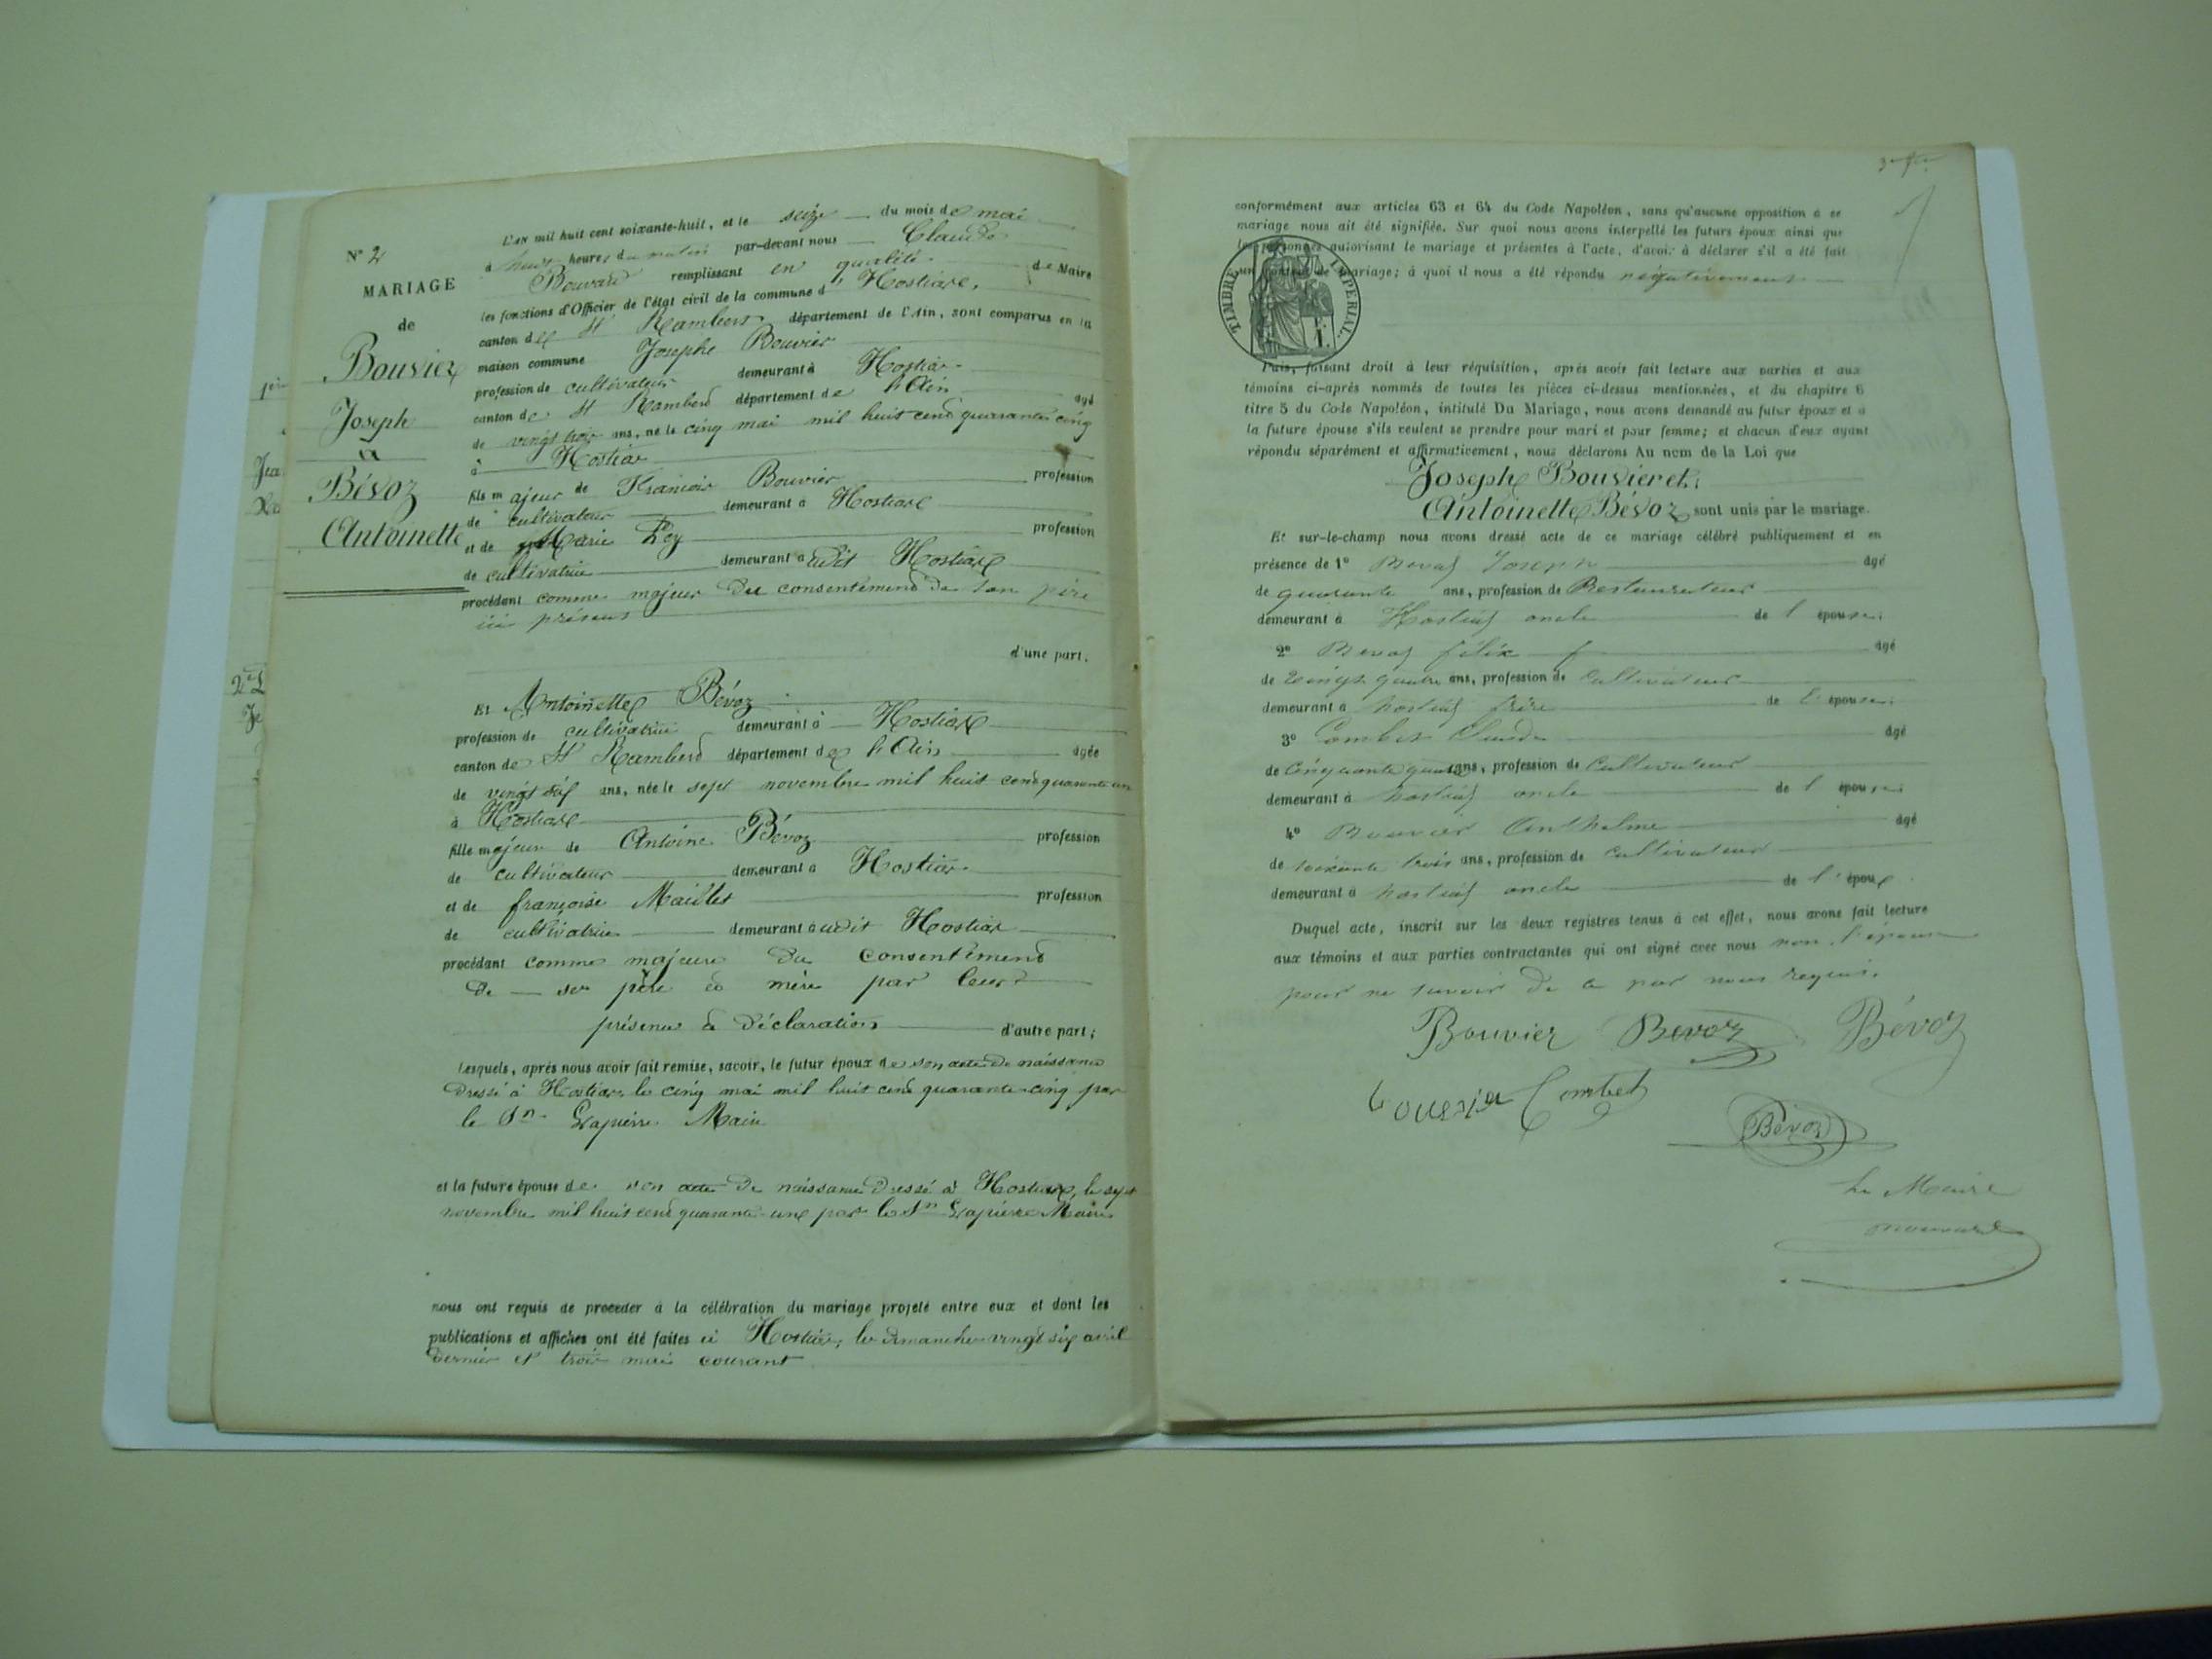 N° 2
MARIAGE
de
Bouvier
Joseph
à
Bévoz
Antoinette
L'AN mil huit cent soixante-huit, et le seize du mois de mai
à heures du matin par-devant nous Claude
Bouvard remplissant en qualité de Maire
les fonctions d'Officier de l'état civil de la commune d'Hostiaz,
canton de St Rambert département de l'Ain, sont comparus en la
maison commune Joseph Bouvier
profession de cultivateur demeurant à Hostiaz
canton de St Rambert département de l'Ain agé
de vingt trois ans, né le cinq mai mil huit cent quarante cinq
à Hostiaz
fils majeur de François Bouvier profession
de cultivateur demeurant à Hostiaz
et de Marie Rey profession
de cultivatrice demeurant audit Hostiaz
procédant comme majeur du consentement de son père
ici présent
d'une part.
Et Antoinette Bévoz
profession de cultivatrice demeurant à Hostiaz
canton de St Rambert département de l'Ain agée
de vingt six ans, née le sept novembre mil huit cent quarante un
à Hostiaz
fille majeure de Antoine Bévoz profession
de cultivateur demeurant à Hostiaz
et de françoise Maillet profession
de cultivatrice demeurant audit Hostiaz
procédant comme majeure du consentement
de ses père et mère par leur
présence et déclaration d'autre part;
Lesquels, après nous avoir fait remise, savoir, le futur époux de son acte de naissance
dressé à Hostiaz le cinq mai mil huit cent quarante-cinq par
le Sr Lapierre Maire
et la future épouse de son acte de naissance dressé à Hostiaz, le sept
novembre mil huit cent quarante-un par le Sr Lapierre Maire
nous ont requis de proceder à la célébration du mariage projeté entre eux et dont les
publications et affiches ont été faites à Hostiaz, les dimanches vingt six avril
dernier et trois mai courant
conformément aux articles 63 et 64 du Code Napoléon, sans qu'aucune opposition à ce
mariage nous ait été signifiée. Sur quoi nous avons interpellé les futurs époux ainsi que
les personnes autorisant le mariage et présentes à l'acte, d'avoir à déclarer s'il a été fait
un contrat de mariage; à quoi il nous a été répondu négativement
TIMBRE IMPERIAL
Puis, faisant droit à leur réquisition, après avoir fait lecture aux parties et aux
témoins ci-après nommés de toutes les pièces ci-dessus mentionnées, et du chapitre 6
titre 5 du Code Napoléon, intitulé Du Mariage, nous avons demandé au futur époux et à
la future épouse s'ils veulent se prendre pour mari et pour femme; et chacun d'eux ayant
répondu séparément et affirmativement, nous déclarons Au nom de la Loi que
Joseph Bouvier et
Antoinette Bévoz sont unis par le mariage.
Et sur-le-champ nous avons dressé acte de ce mariage célébré publiquement et en
présence de 1° Bevoz Joseph agé
de quarante ans, profession de Restaurateur
demeurant à Hostiaz oncle de l'épouse.
2° Bevoz félix agé
de vingt quatre ans, profession de Cultivateur
demeurant à hostiaz frère de l'épouse.
3° Combet Claude agé
de cinquante quatre ans, profession de Cultivateur
demeurant à hostiaz oncle de l'épouse
4° Bouvier Anthelme agé
de soixante trois ans, profession de Cultivateur
demeurant à hostiaz oncle de l'époux
Duquel acte, inscrit sur les deux registres tenus à cet effet, nous avons fait lecture
aux témoins et aux parties contractantes qui ont signé avec nous non l'épouse
pour ne savoir de ce par nous requis.
Bouvier Bevoz Bévoz
Combet
Bévoz
Le Maire
Bouvard